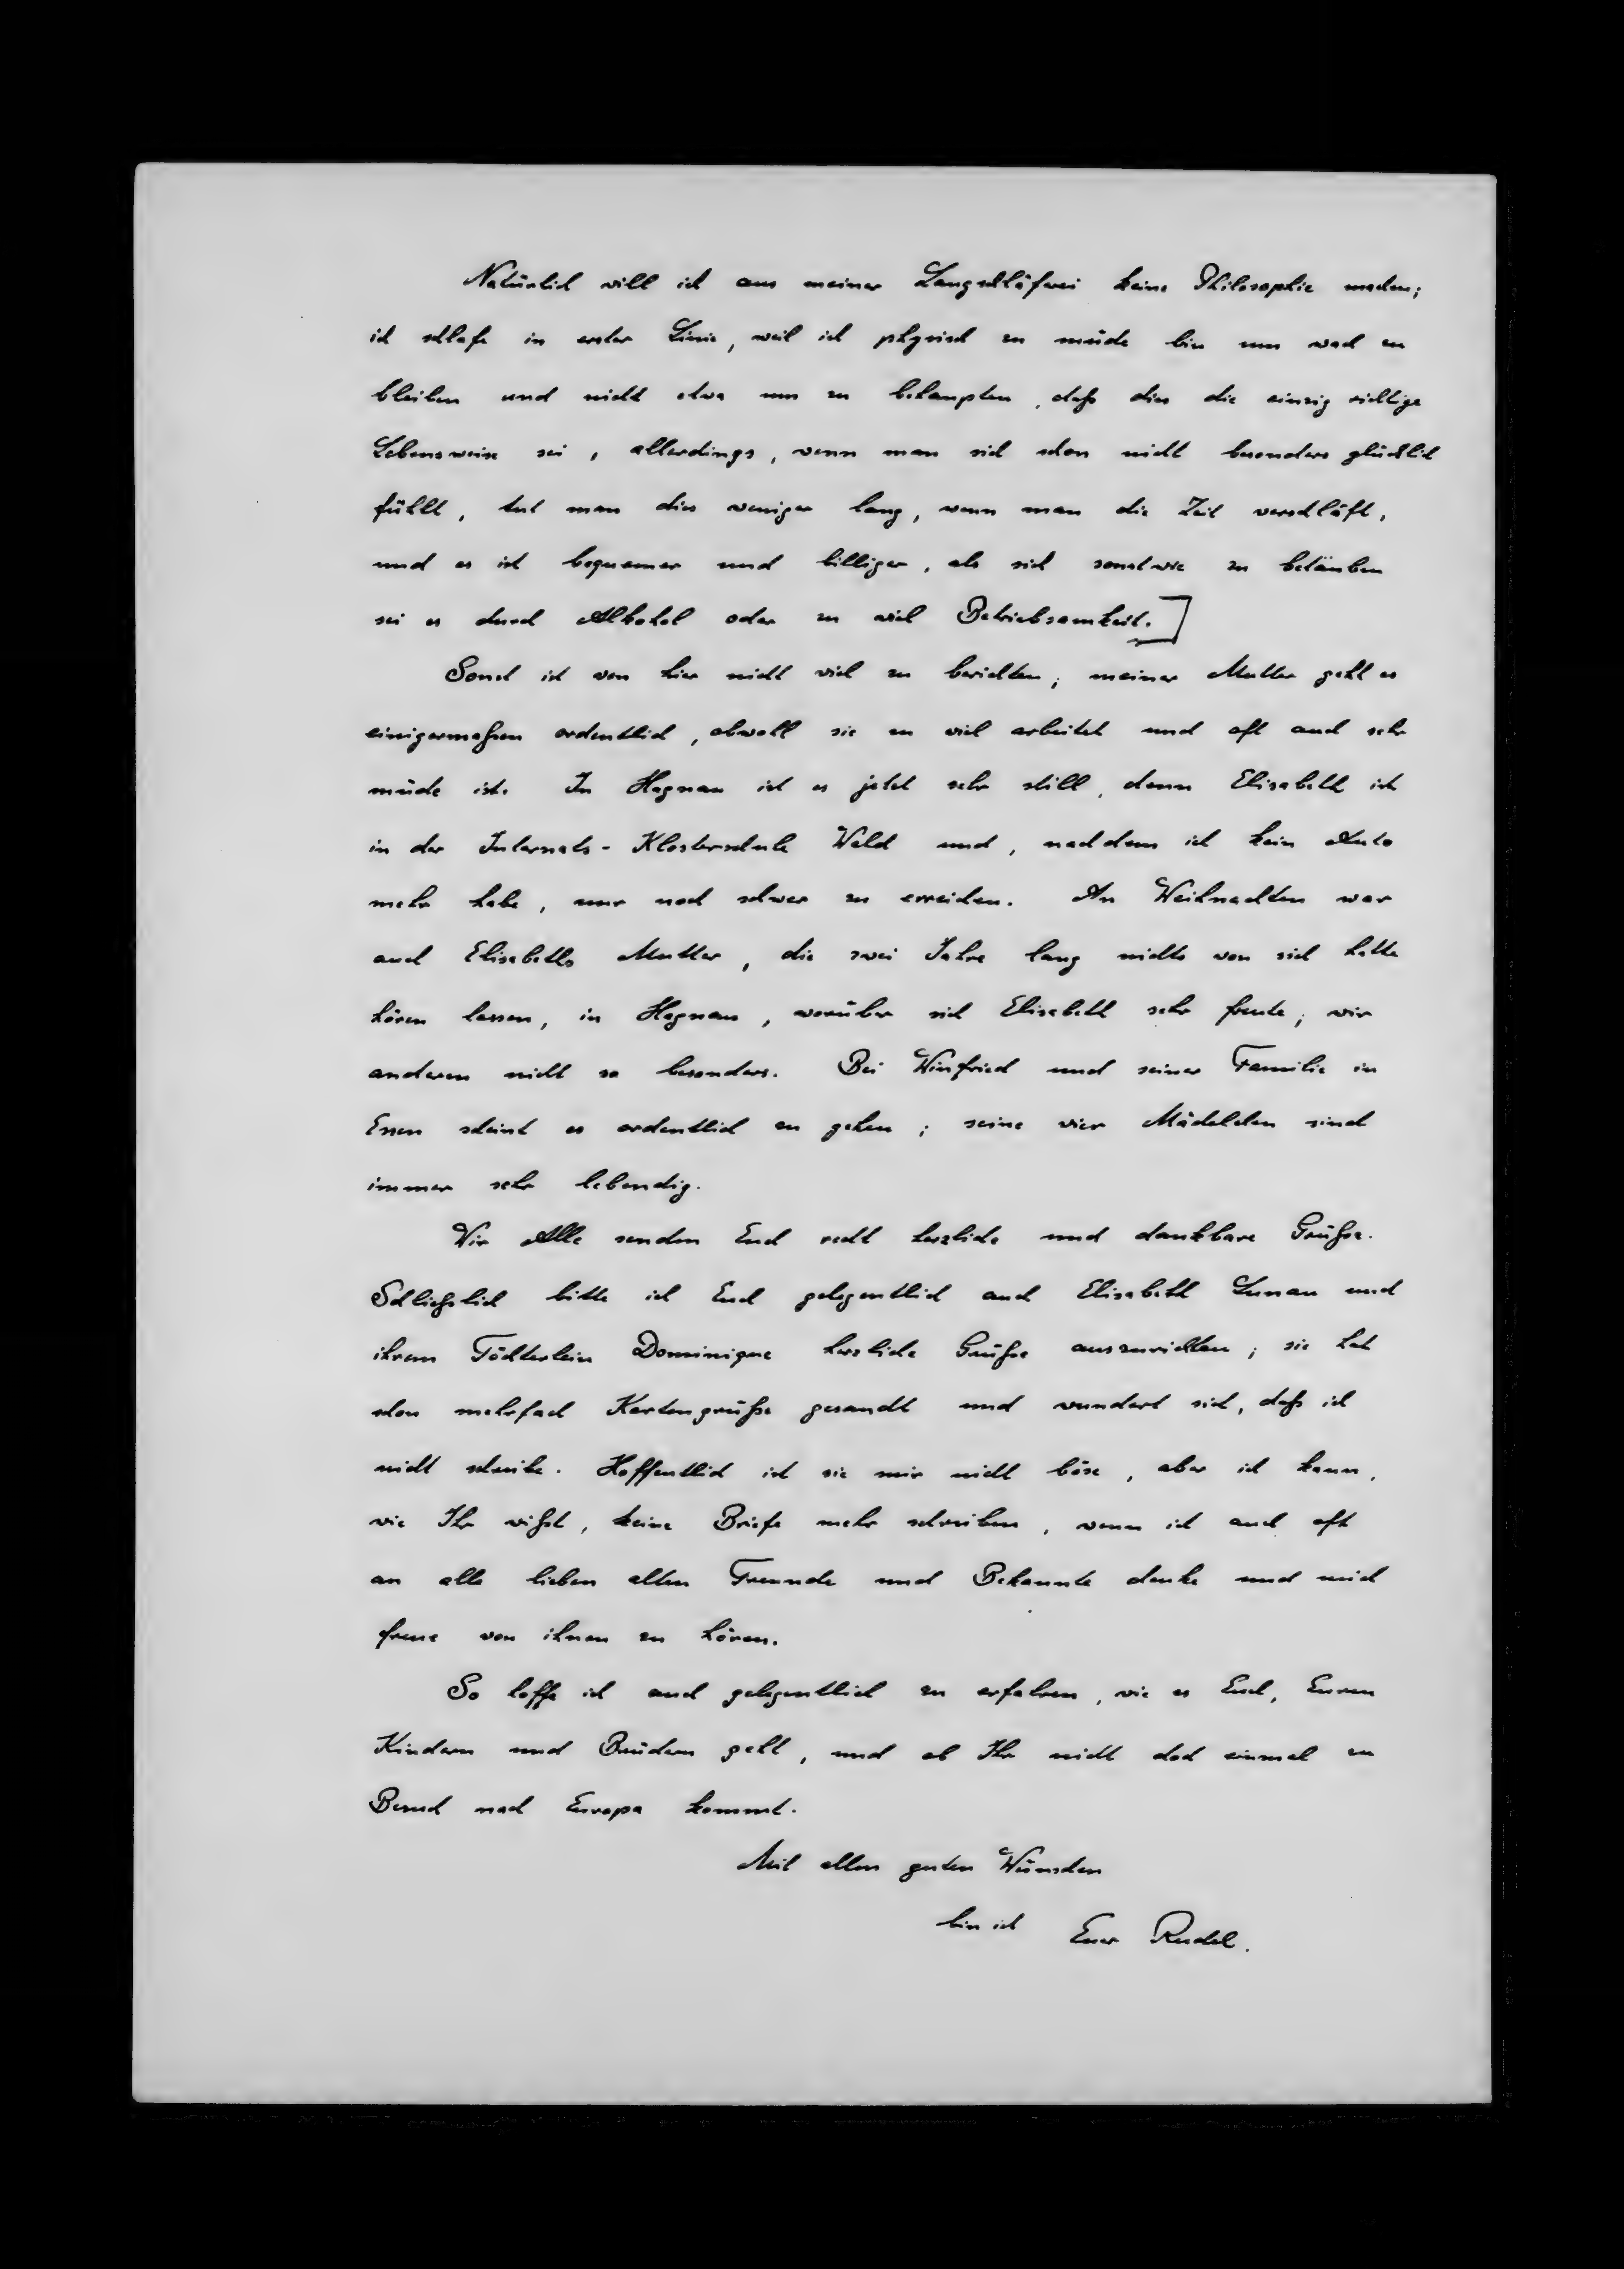 Natürlich will ich aus meiner Langschläferei keine Philosophie machen;
ich schlafe in erster Linie, weil ich physisch zu müde bin um wach zu
bleiben und nicht etwa um zu behaupten, daß dies die einzig richtige
Lebensweise sei, allerdings, wenn man sich schon nicht besonders glücklich
fühlt, tut man dies weniger lang, wenn man die Zeit verschläft,
und es ist bequemer und billiger, als sich sonstwie zu betäuben
sei es durch Alkohol oder zu viel Betriebsamkeit.]
Sonst ist von hier nicht viel zu berichten; meiner Mutter geht es
einigermaßen ordentlich, obwohl sie zu viel arbeitet und oft auch sehr
müde ist. In Hagnau ist es jetzt sehr still, denn Elisabeth ist
in der Internats-Klosterschule Wald und, nachdem ich kein Auto
mehr habe, nur noch schwer zu erreichen. An Weihnachten war
auch Elisabeths Mutter, die zwei Jahre lang nichts von sich hatte
hören lassen, in Hagnau, worüber sich Elisabeth sehr freute; wir
anderen nicht so besonders. Bei Winfried und seiner Familie in
Essen scheint es ordentlich zu gehen; seine vier Mädelchen sind
immer sehr lebendig.
Wir Alle senden Euch recht herzliche und dankbare Grüße.
Schließlich bitte ich Euch gelegentlich auch Elisabeth Lunau und
ihrem Töchterlein Dominique herzliche Grüße auszurichten; sie hat
schon mehrfach Kartengrüße gesandt und wundert sich, daß ich
nicht schreibe. Hoffentlich ist sie mir nicht böse, aber ich kann,
wie Ihr wißt, keine Briefe mehr schreiben, wenn ich auch oft
an alle lieben alten Freunde und Bekannte denke und mich
freue von ihnen zu hören.
So hoffe ich auch gelegentlich zu erfahren, wie es Euch, Euren
Kindern und Brüdern geht, und ob Ihr nicht doch einmal zu
Besuch nach Europa kommt.
Mit allen guten Wünschen
bin ich Euer Rudel.